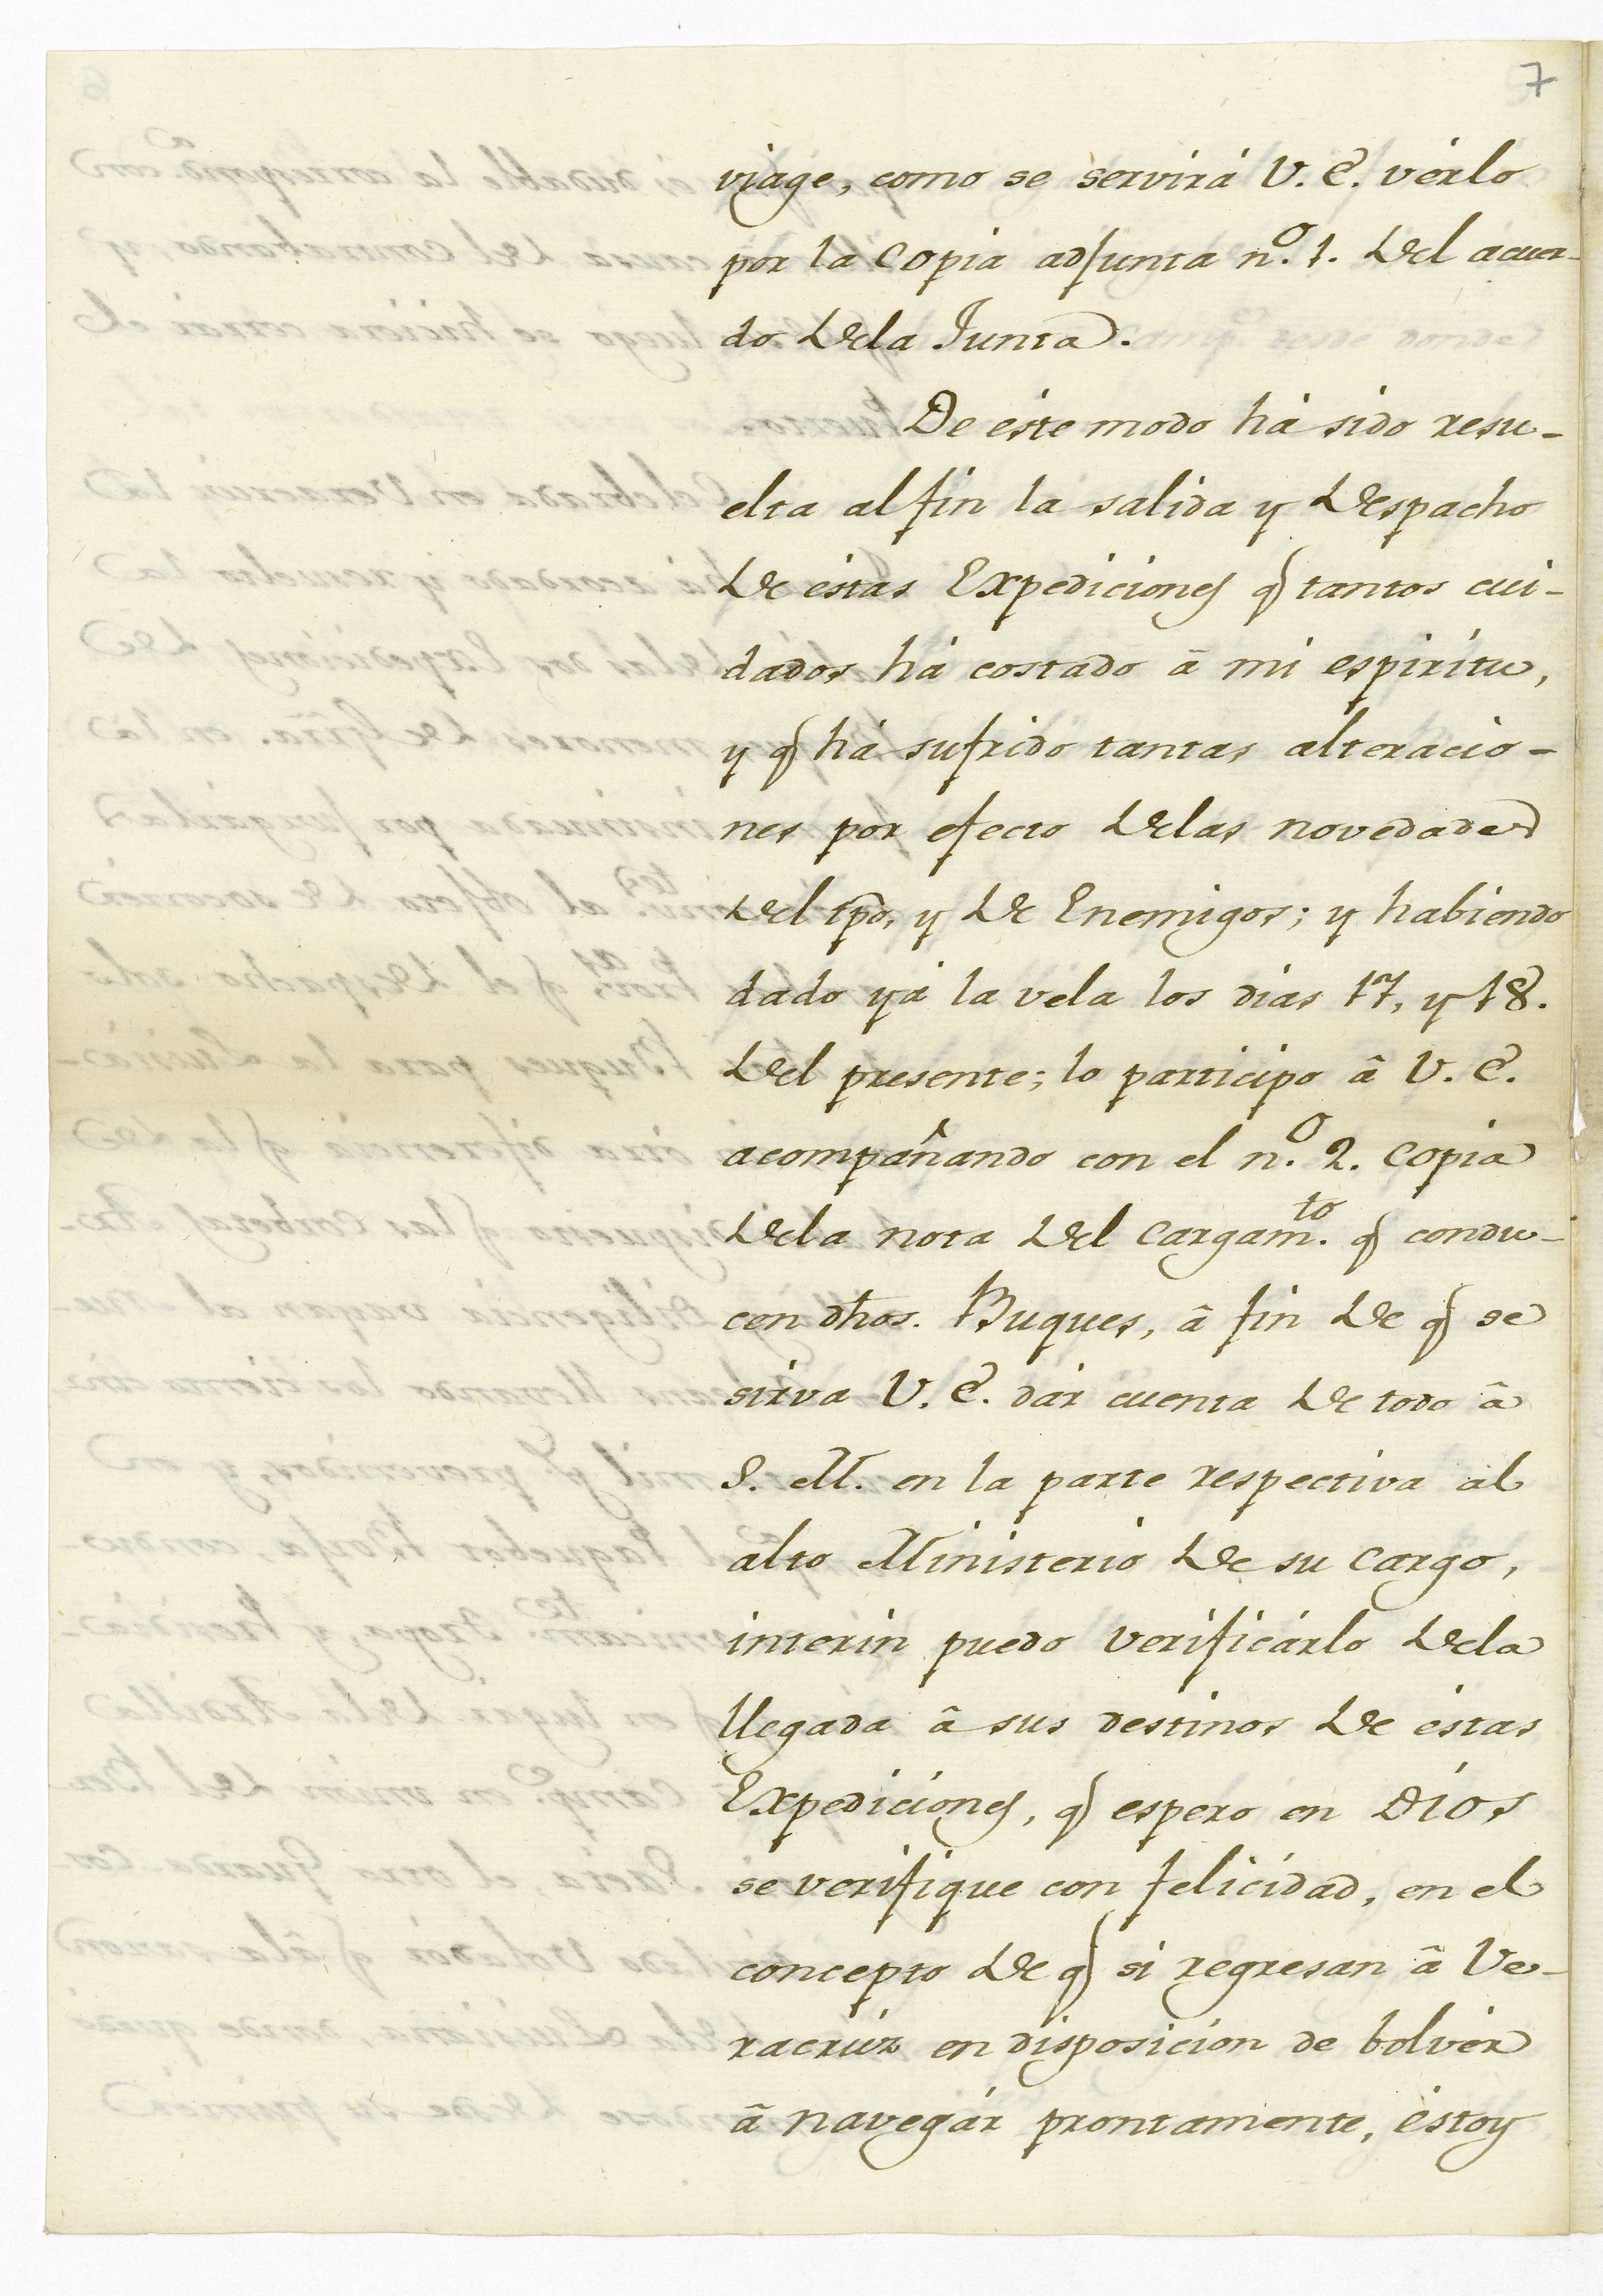 7
viage, como se servirá V. E. vérlo
por la copia adjunta n.º 1. del acuer-
do dela Junta.
De éste modo há sido resu-
elta al fin la salida y despacho
de éstas Expediciones q̃ tantos cui-
dados há costado â mi espiritu,
y q̃ há sufrido tantas alteracio-
nes por efecto delas novedades
del tp̃o, y de Enemigos; y habiendo
dado yá la vela los dias 17, y 18.
del presente; lo participo â V. E.
acompañando con el n.º 2. copia
dela nota del cargam.to q̃ condu-
cen dhos. Buques, â fin de q̃ se
sirva V. E. dár cuenta de todo â
S. M. en la parte respectiva al
alto Ministerio de su cargo,
interin puedo verificárlo dela
llegada â sus destinos de éstas
Expediciones, q̃ espero en Dios
se verifique con felicidad, en el
concepto de q̃ si regresan â Ve-
racruz en disposicion de bolvér
â navegár prontamente, éstoy